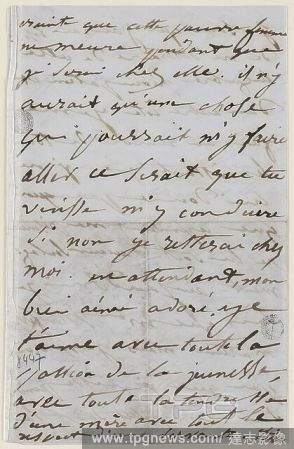 craint que cette pauvre femme
ne meure pendant que
je serai chez elle. il n'y
aurait qu'une chose
qui pourrait m'y faire
aller ce serait que tu
vinsse m'y conduire
si non je resterai chez
moi. en attendant, mon
bien aimé adoré, je
t'aime avec toute la
passion de la jeunesse,
avec toute la tendresse
d'une mère avec tout le
respect
8447
TPG
www.tpgnews.com 達志影像